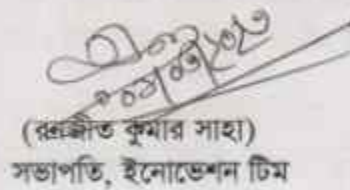 (রনজীত কুমার সাহা)
সভাপতি, ইনোভেশন টিম